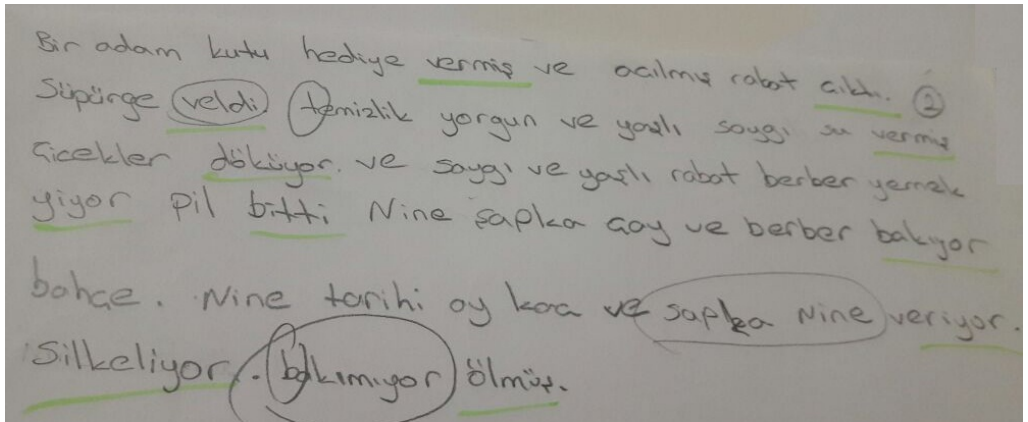 Bir adam kutu hediye vermiş ve acılmış robot cıktı. ②
Süpürge veldi temizlik yorgun ve yaşlı saygı su vermiş
Cicekler döküyor. ve saygı ve yaşlı robot berber yemek
yiyor pil bitti Nine şapka Gay ve berber bakıyor
bahçe. Nine tarihi ay kaa ve sapka Nine veriyor.
Silkeliyor. bakımıyor ölmüş.